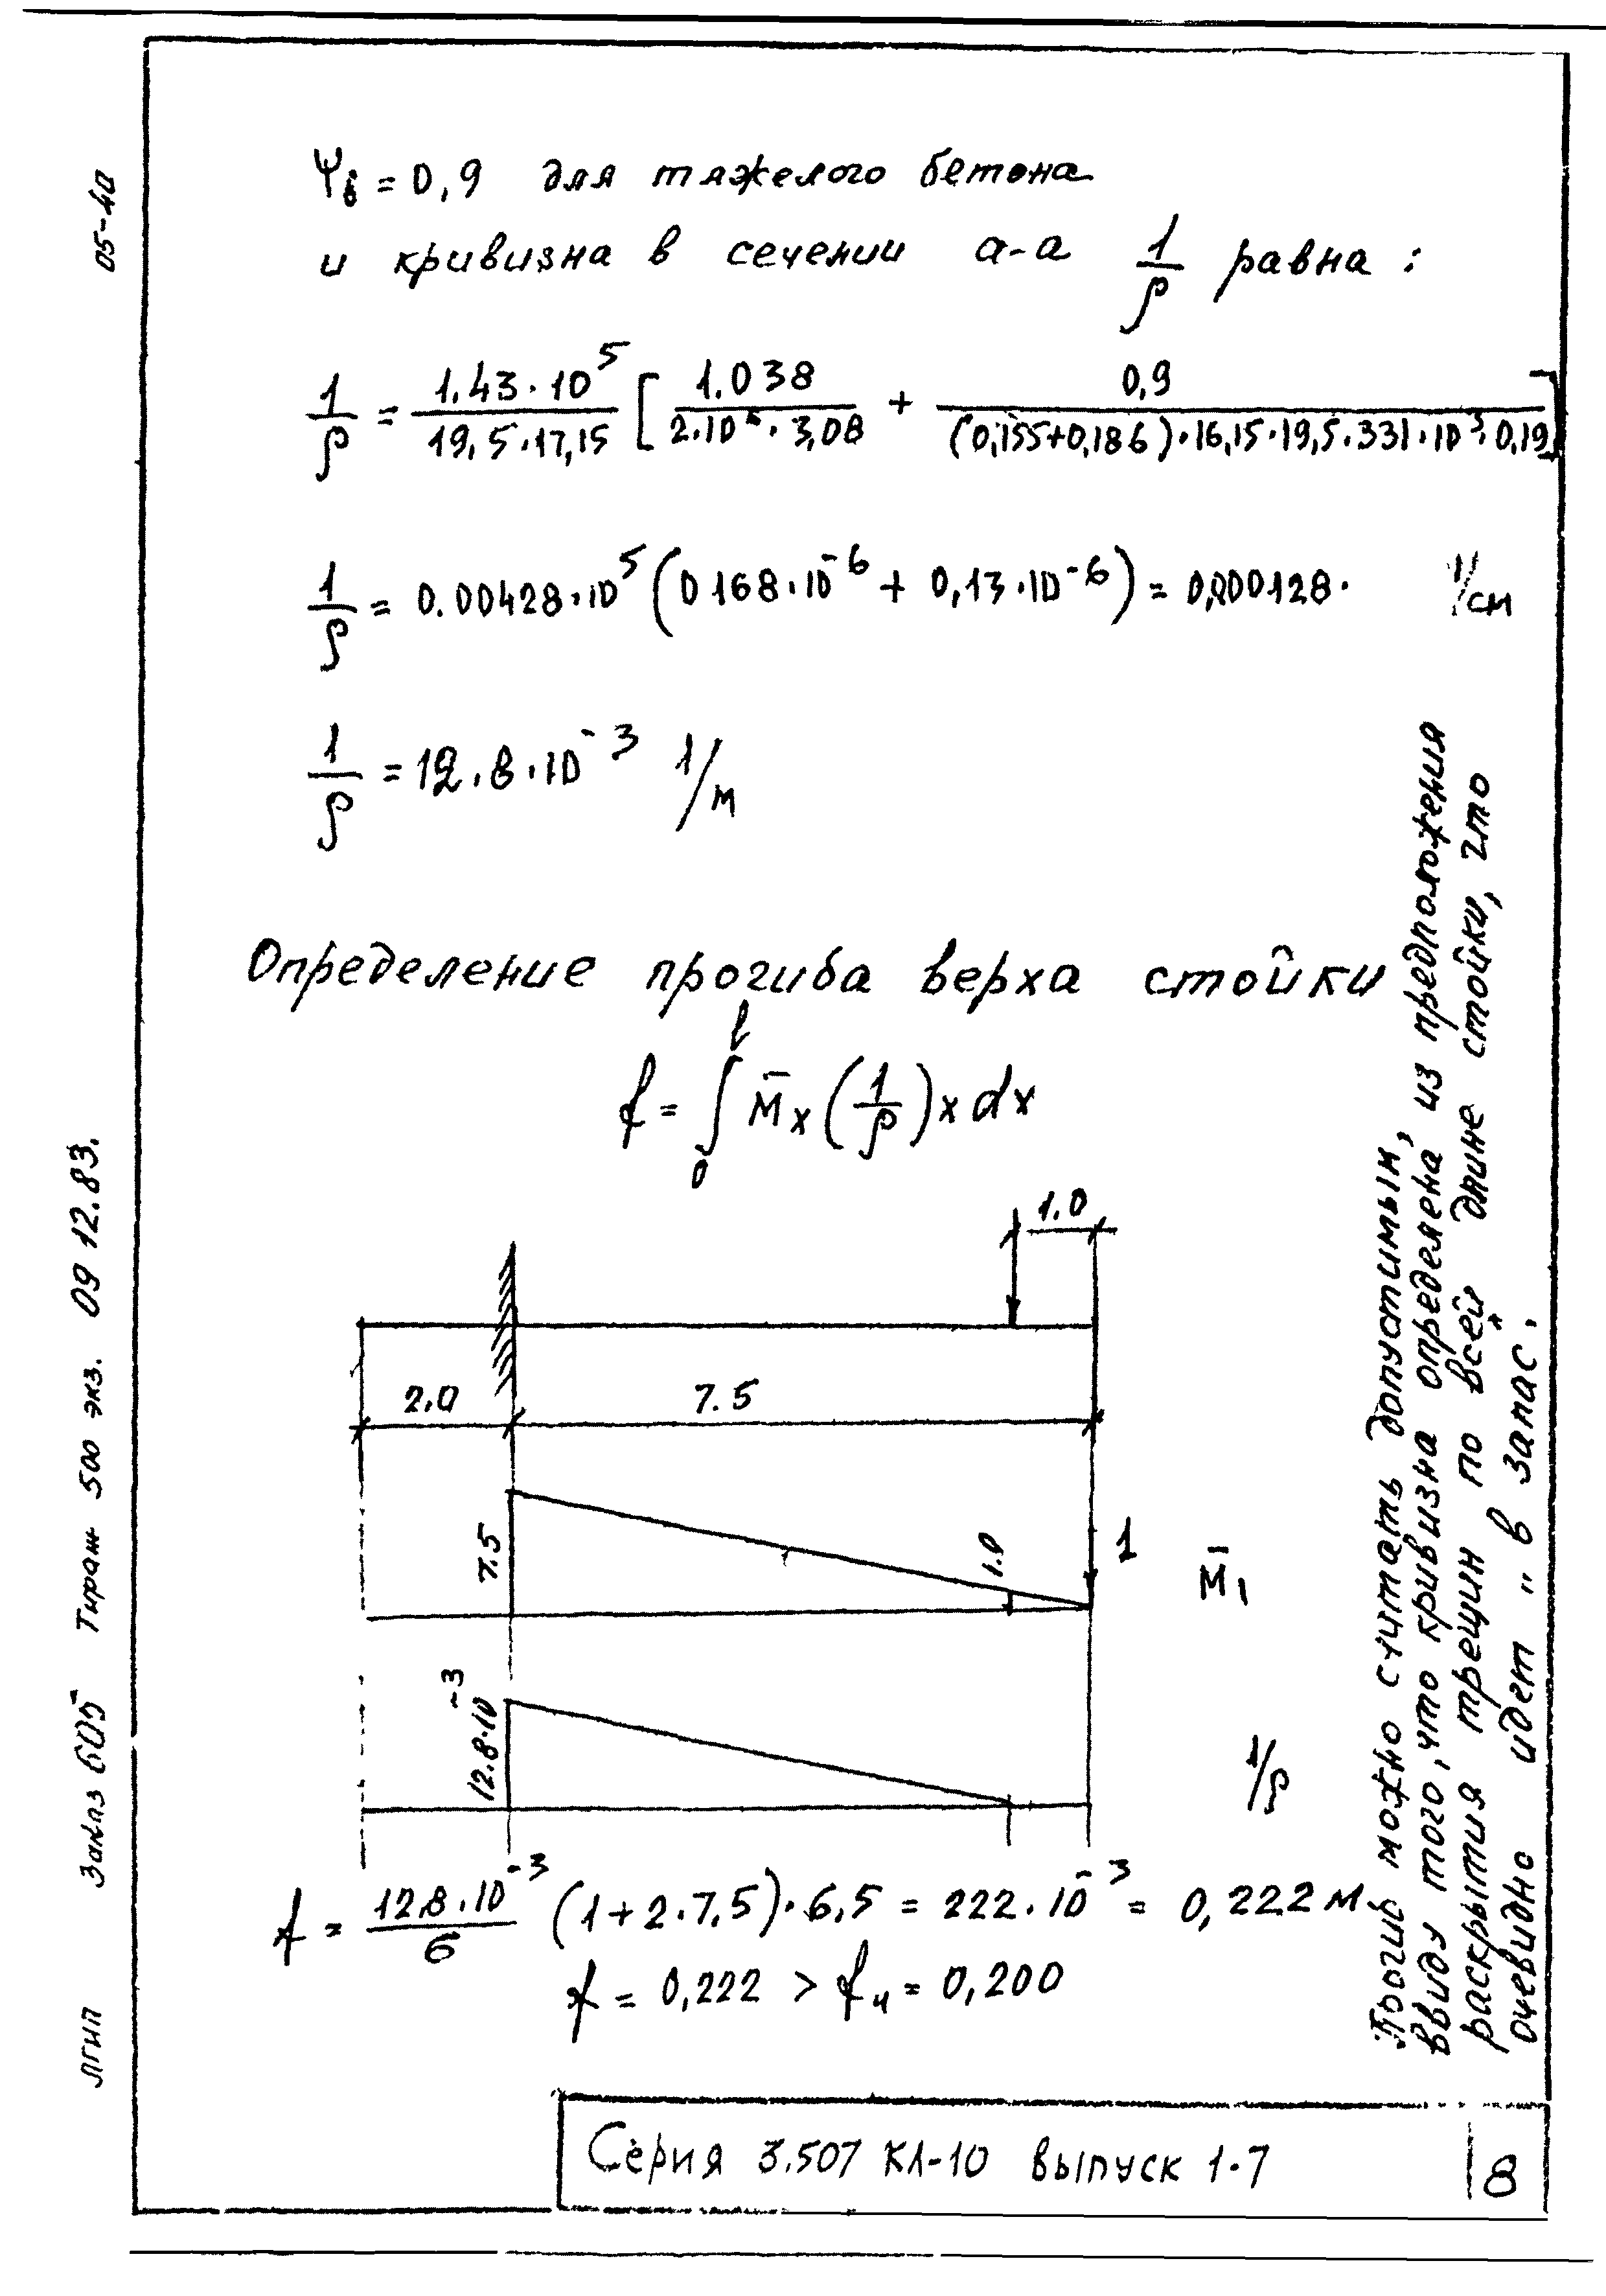 ψв = 0,9 для тяжелого бетона
и кривизна в сечении а-а 1/ρ равна :
1/ρ = 1.43·10^5 / 19,5·17,15 [ 1.038 / 2·10^6·3,08 + 0,9 / (0,155+0,186)·16,15·19,5·331·10^3·0,19 ]
1/ρ = 0.00428·10^5 (0 168·10^-6 + 0,13·10^-6) = 0,000128· 1/см
1/ρ = 12.8·10^-3 1/м
Определение прогиба верха стойки
f = ∫₀^l M̄x (1/ρ)x dx
1.0
2.0 7.5
7.5 1.0 1 M̄1
12.8·10^-3 1/ρ
f = 12.8·10^-3 / 6 (1+2·7,5)·6,5 = 222·10^-3 = 0,222 м
f = 0,222 > fн = 0,200
Прогиб можно считать допустимым,
ввиду того, что кривизна определена из предположения
раскрытия трещин по всей длине стойки, что
очевидно идет " в запас".
Серия 3.507 КЛ-10 выпуск 1-7 8
05-40
ЛГИП Заказ 605 Тираж 500 экз. 09 12.83.